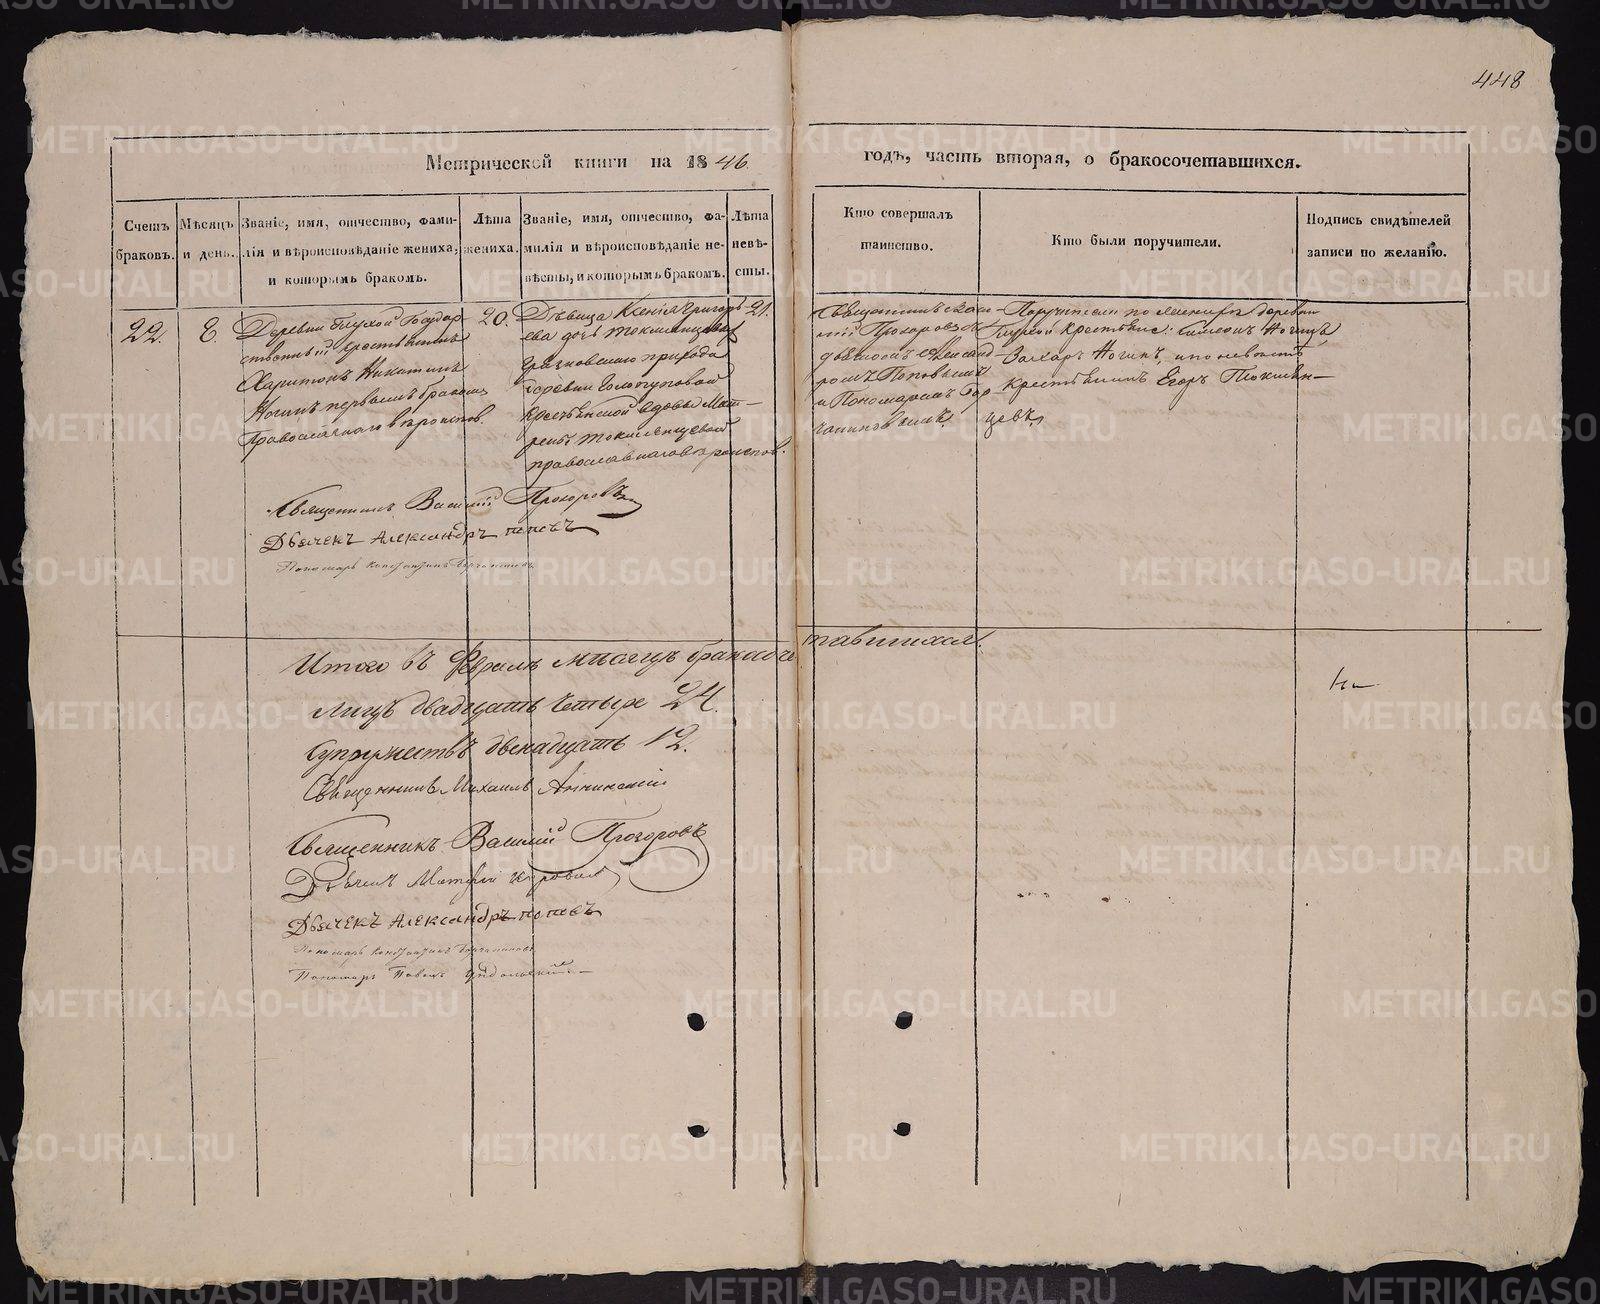 448
Метрической книги на 1846.
годъ, часть вторая, о бракосочетавшихся.
Счетъ
браковъ.
Мѣсяцъ
и день.
Званіе, имя, отчество, фами-
лія и вѣроисповѣданіе жениха,
и которымъ бракомъ.
Лѣта
жениха.
Званіе, имя, отчество, фа-
милія и вѣроисповѣданіе не-
вѣсты, и которымъ бракомъ.
Лѣта
невѣ-
сты.
Кто совершалъ
таинство.
Кто были поручители.
Подпись свидѣтелей
записи по желанію.
22.
Деревни Глухой Государ
ственный крестьянинъ
Харитонъ Никитинъ
Ногинъ первымъ бракомъ
Православнаго вѣроиспов.
20.
Дѣвица Ксенія Григорь
ева дочь
природа
деревни
крестьянской вдовы Мат-
рены
православнаго вѣроиспов.
21.
Священникъ Васи-
лій Прозоровъ съ
дьячкомъ Александ
ромъ Поповымъ
и Пономаремъ Гор
Поручители по женихѣ деревни
Глухой крестьяне: Симеонъ Ногинъ,
Захаръ Ногинъ, и по невѣстѣ
Крестьянинъ Егоръ Тюкмен-
цевъ.
Священникъ Василій Прозоровъ
Дьячекъ Александръ поповъ
Пономарь Константинъ
Итого въ Февралѣ мѣсяцѣ бракосоче
тавшихся
лицъ двадцать четыре 24.
супружествъ двенадцать 12.
Священникъ Михаилъ Аннинскій
Священникъ Василій Прозоровъ
Дьячекъ Матфей
Дьячекъ Александръ поповъ
Пономарь Константинъ
Пономарь Павелъ Удольскій
METRIKI.GASO-URAL.RU